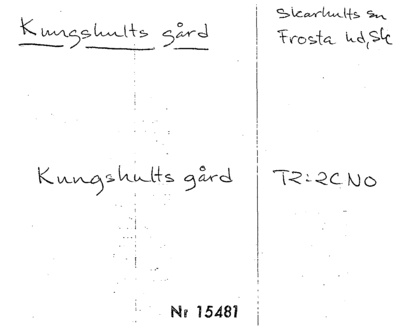 Kungshults gård
Skarhults sn
Frosta hd, Sk
Kungshults gård
T2:2C NO
Nr 15481